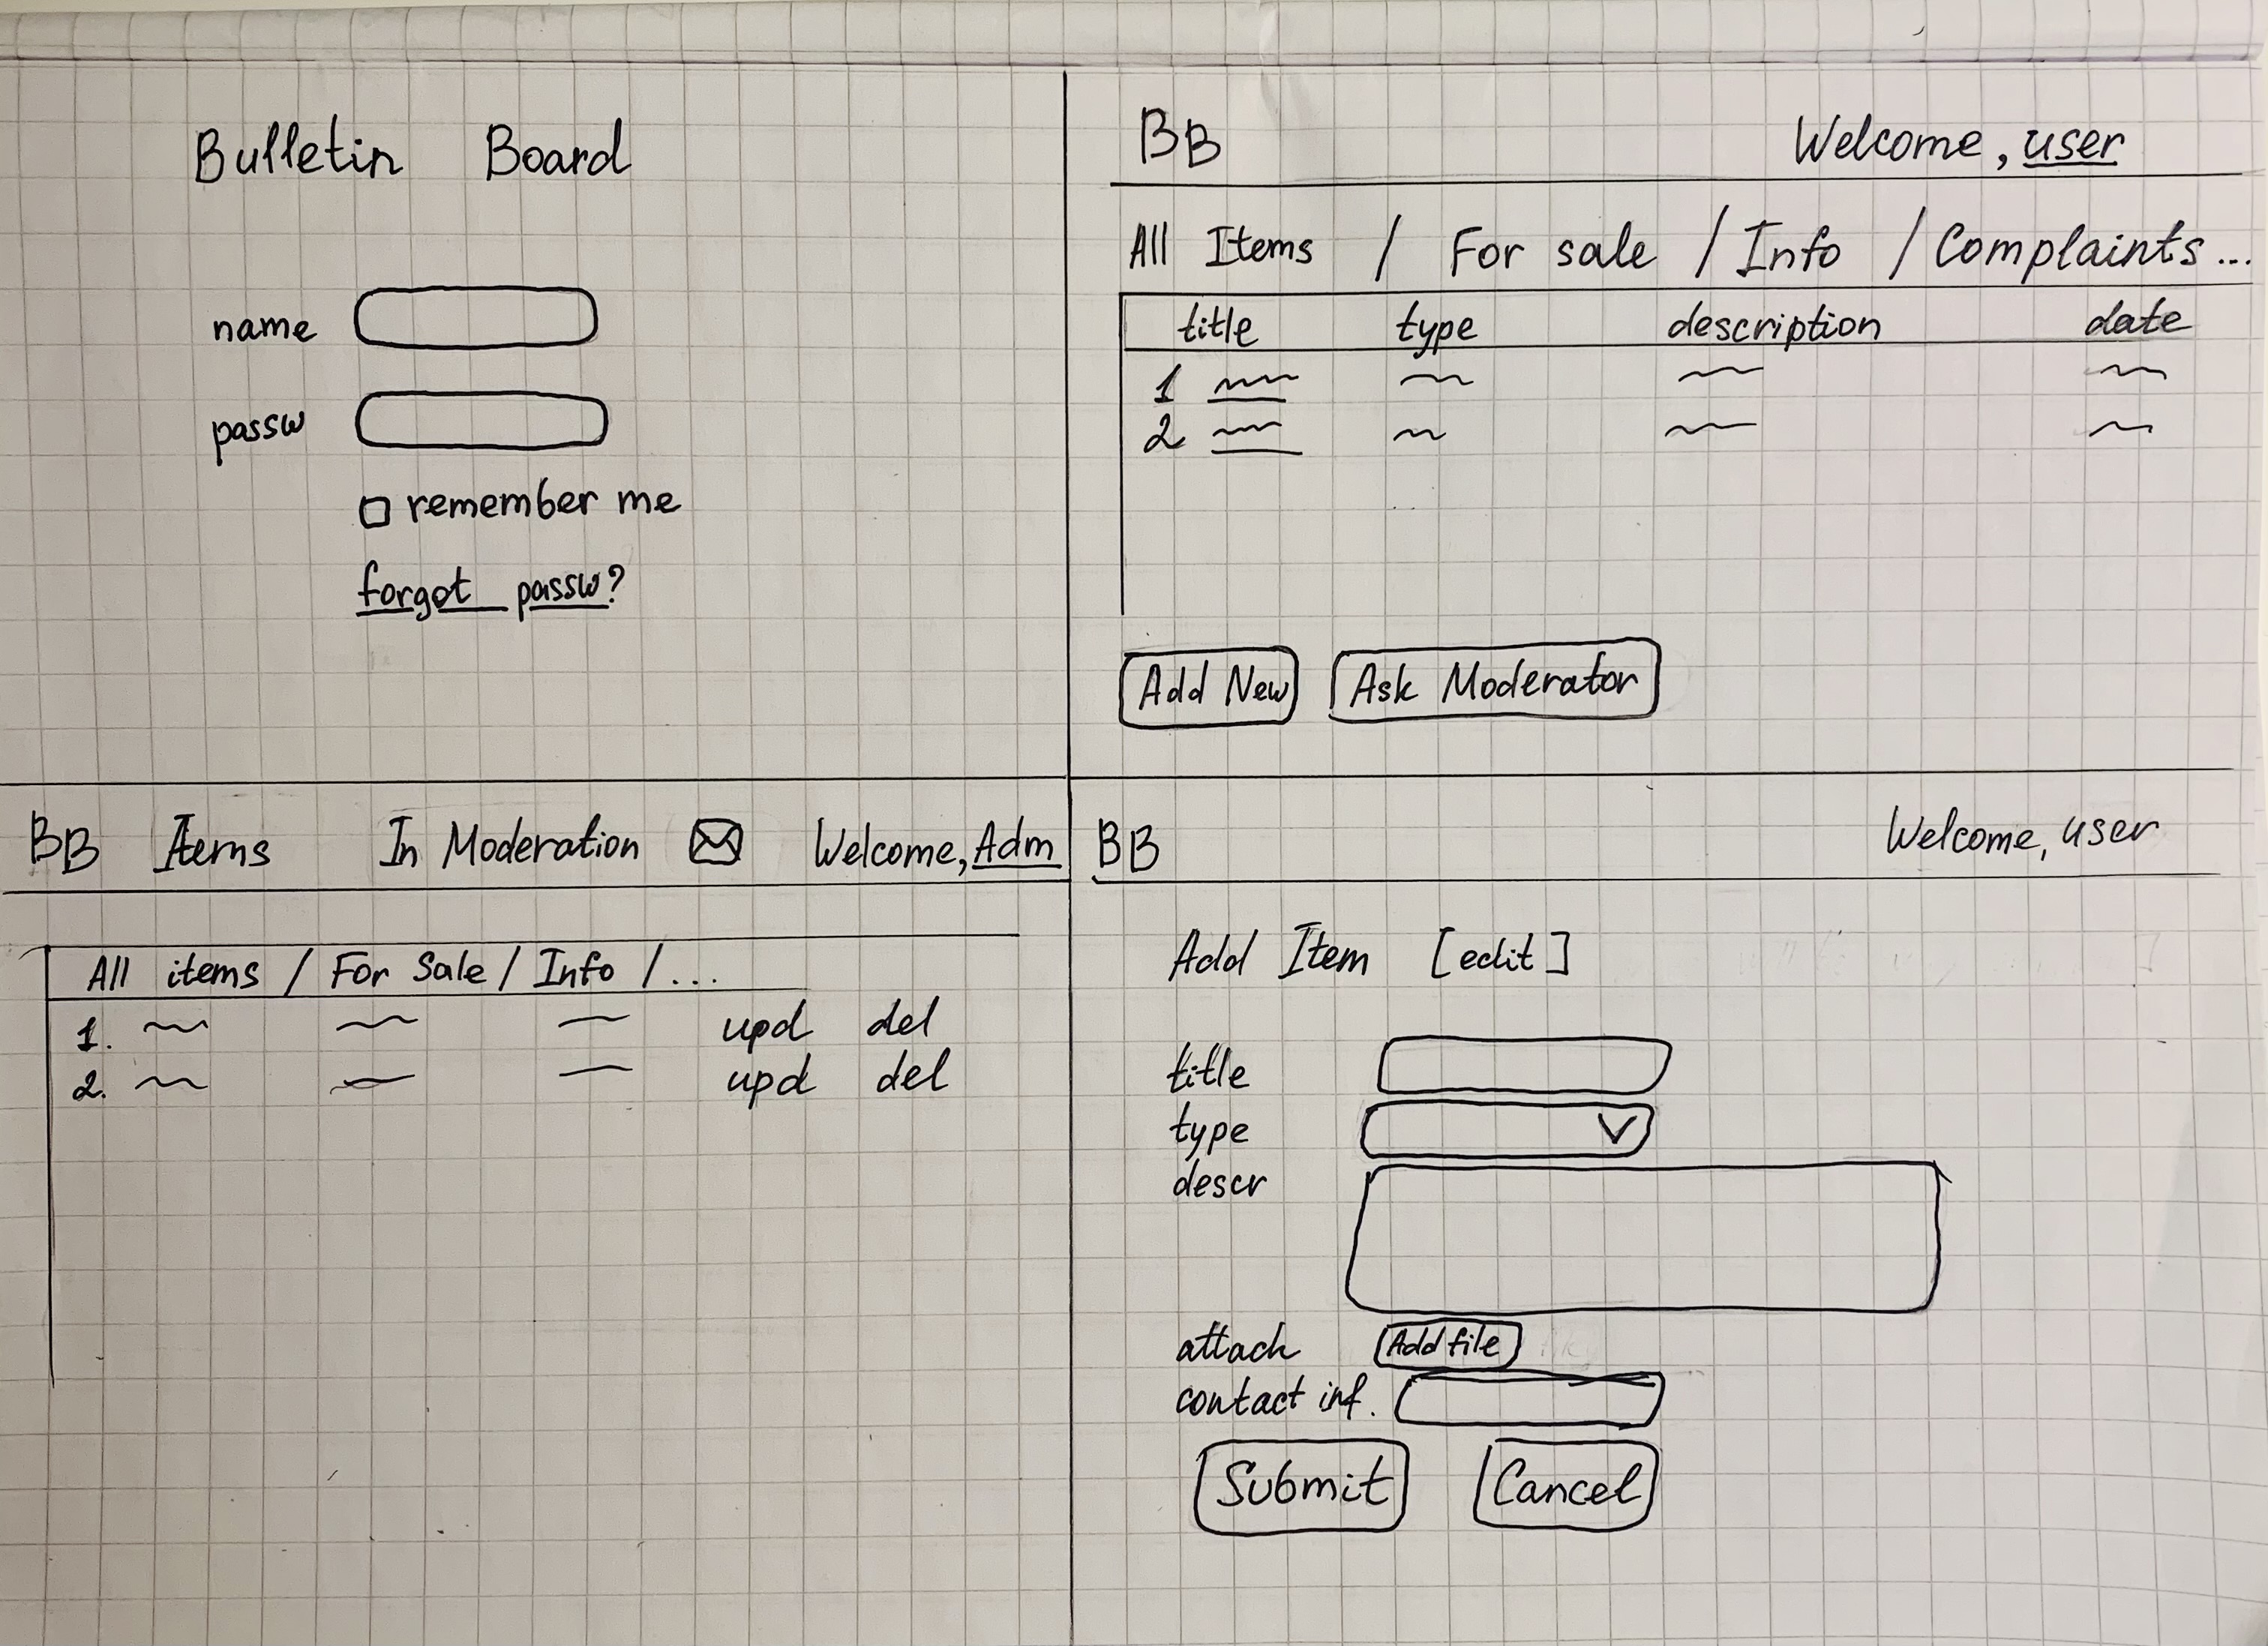 Bulletin Board
name
passw
remember me
forgot passw?
BB Welcome, user
All Items / For sale / Info / Complaints...
title type description date
1
2
Add New Ask Moderator
BB Items In Moderation Welcome, Adm
All items / For Sale / Info / ...
1. upd del
2. upd del
BB Welcome, user
Add Item [edit]
title
type
descr
attach Add file
contact inf.
Submit Cancel